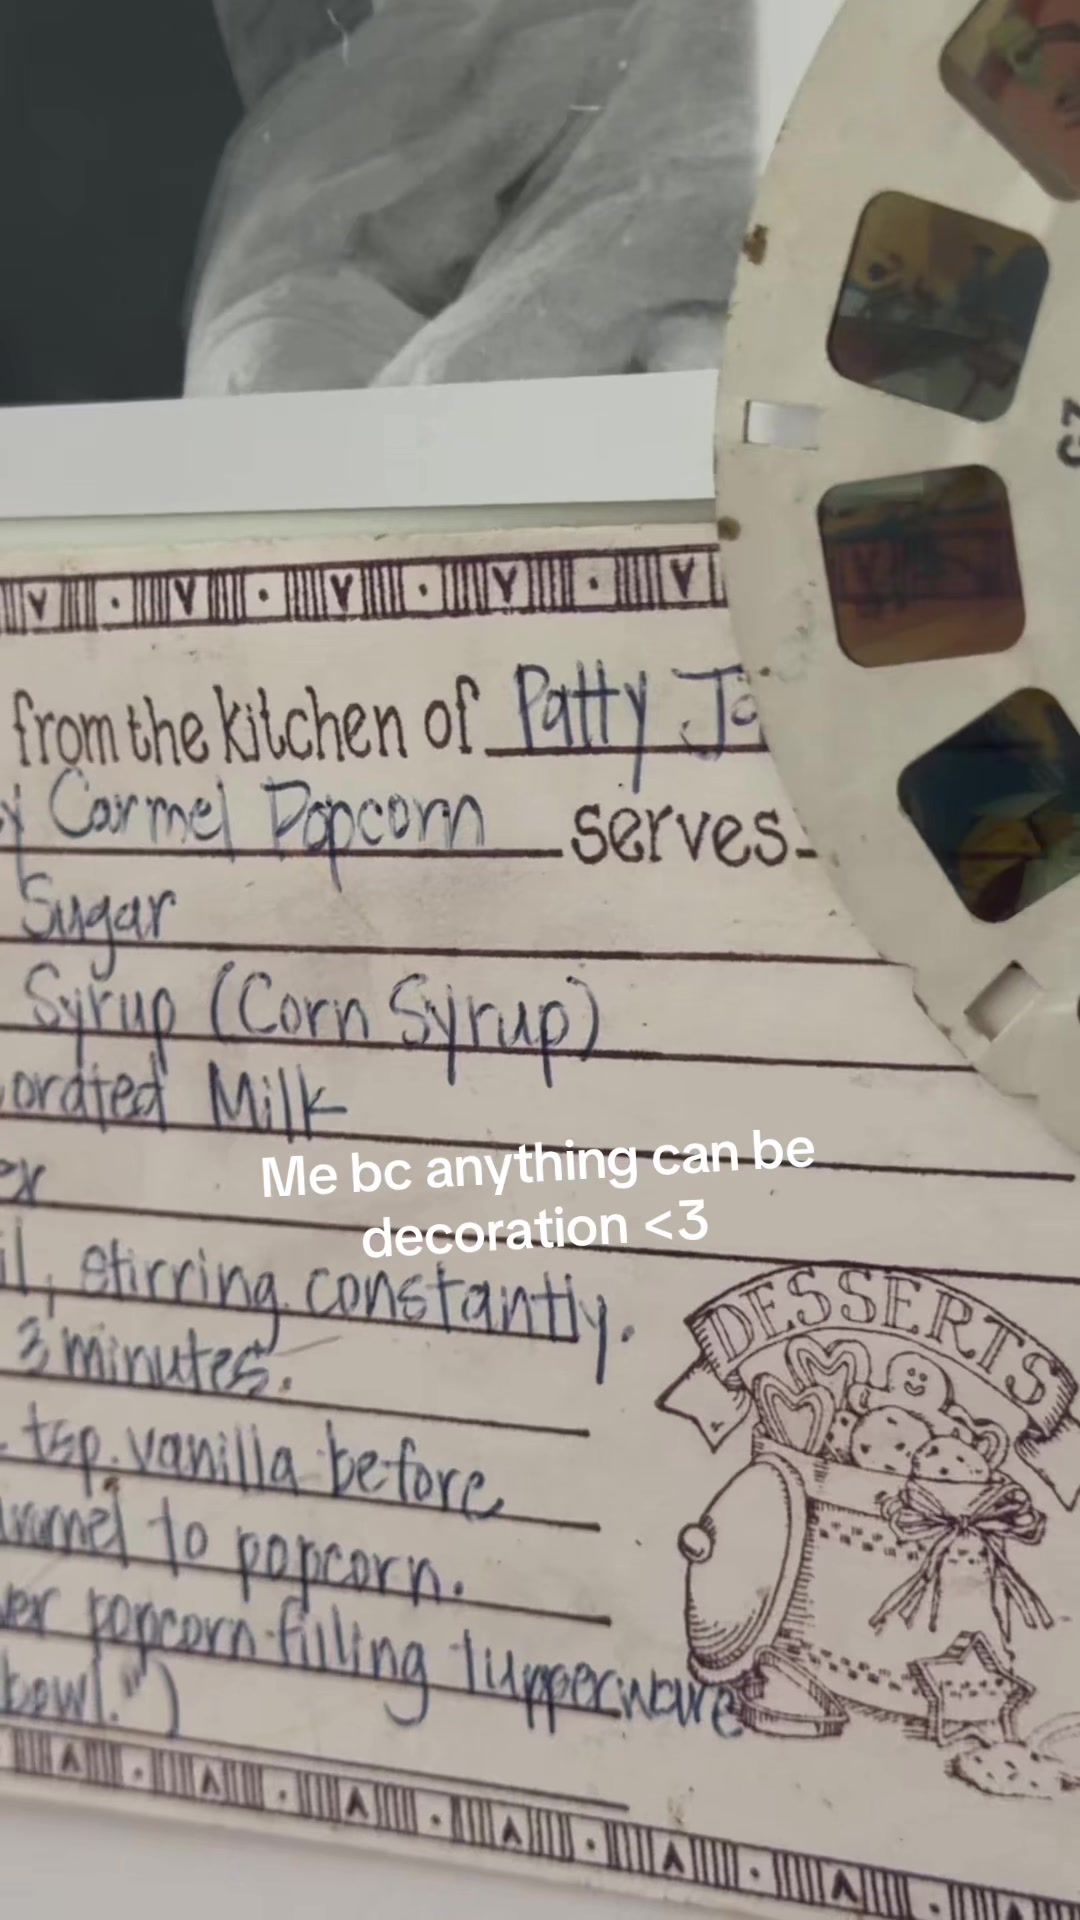 from the kitchen of Patty Jo
Carmel Popcorn serves
Sugar
Syrup (Corn Syrup)
orated Milk
Me bc anything can be
decoration <3
er
il, stirring constantly.
3 minutes.
tsp. vanilla before
ramel to popcorn.
ver popcorn filling tupperware
bowl.")
DESSERTS